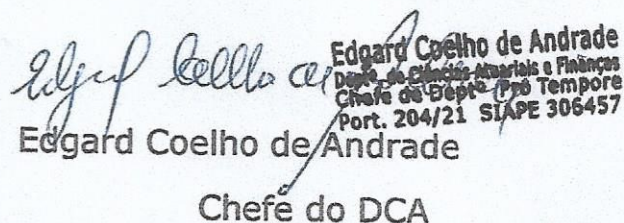 Edgard Coelho de Andrade
Deptº de Ciências Atuariais e Finanças
Chefe de Deptº Pró Tempore
Port. 204/21 SIAPE 306457
Edgard Coelho de Andrade
Chefe do DCA